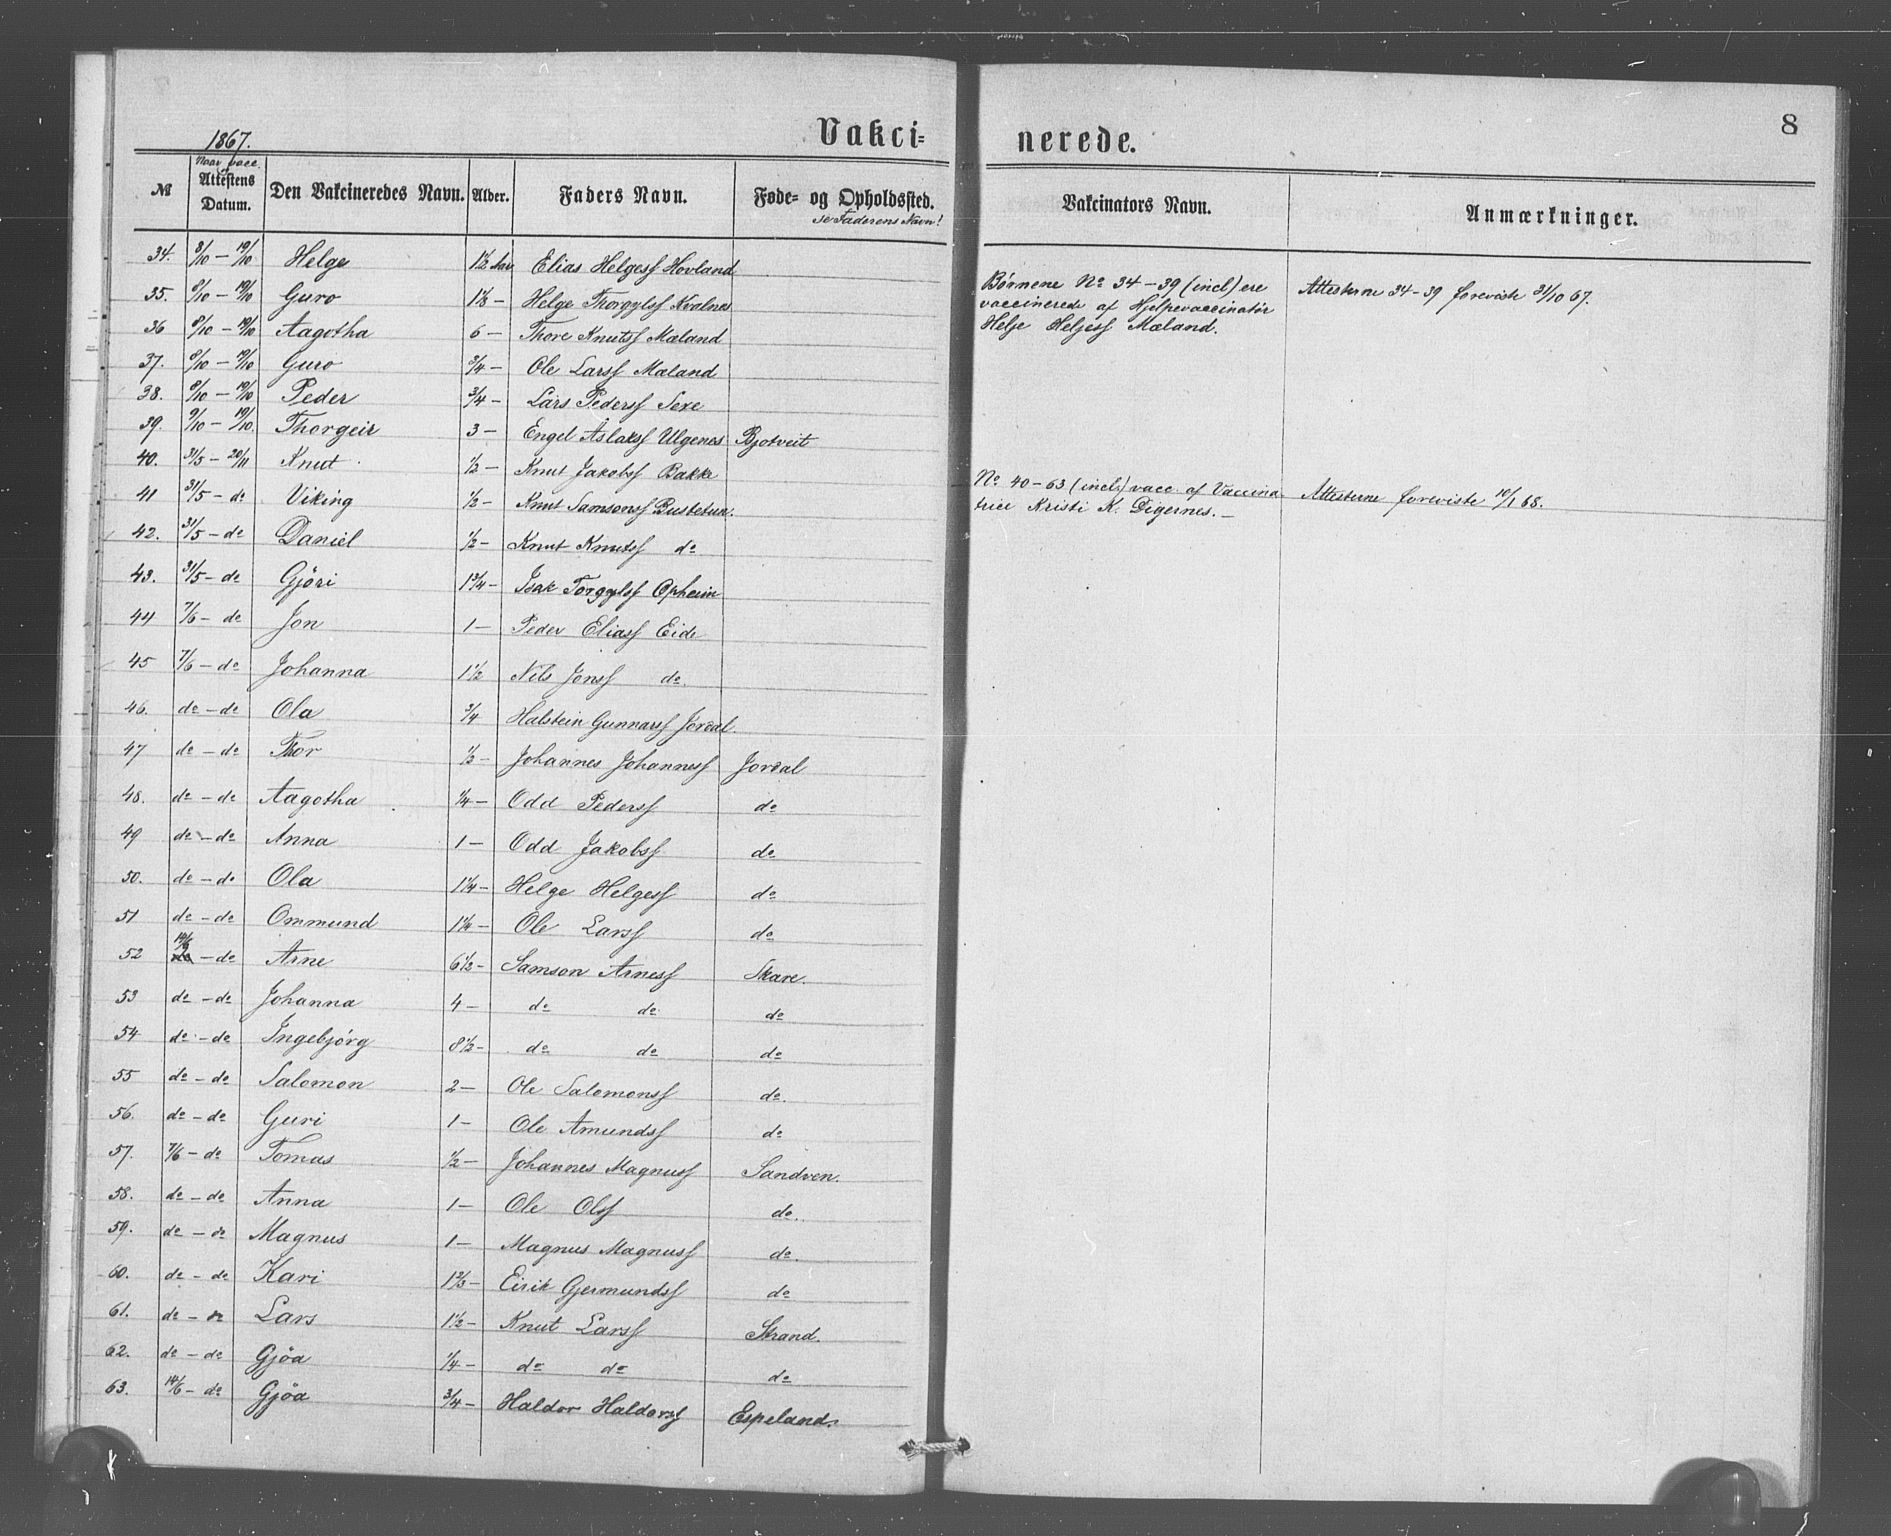 8
1867.
Vakci-
nerede.
№
Naar vacc.
Attestens
Datum.
Den Vakcineredes Navn.
Alder.
Faders Navn.
Føde- og Opholdssted.
se Faderens Navn!
Vakcinators Navn.
Anmærkninger.
34. 8/10 – 19/10 Helge 1½ Aar Elias Helgess Hovland
35. 9/10 – 19/10 Guro 1⅛ – Helge Thorgylss Kvalnes
36 9/10 – 19/10 Aagotha 6 – Thore Knutss Mæland
37. 9/10 – 19/10 Guro ¾ – Ole Larss Mæland
38. 9/10 – 19/10 Peder ¾ – Lars Pederss Sexe
39. 9/10 – 19/10. Thorgeir 3 – Engel Aslakss Ulgenes Bjotveit
40. 31/5 – 20/11 Knut ½ – Knut Jakobss Bakke
41 31/5 – do Viking ½ – Knut Samsonss Bustetun.
42. 31/5 – do Daniel ½ – Knut Knutss do
43. 31/5 – do Gjöri 1¾ – Isak Torgylss Opheim
44 7/6 – do Jon 1 – Peder Eliass Eide
45 7/6 – do Johanna 1½ Nils Jonss do.
46. do – do Ola ¾ Halstein Gunnarss Jordal.
47 do – do Thor ½ – Johannes Johanness Jordal
48. do – do Aagotha ¼ – Odd Pederss do
49 do – do Anna 1 – Odd Jakobss do
50. do – do Ola 1¼ – Helge Helgess do
51 do – do Ommund 1¼ – Ole Larss do
52 14/6 – do Arne 6½ – Samson Arness Skare.
53 do – do Johanna 4 – do do do
54 do – do Ingebjörg 8½ – do do do
55 do – do Salomon 2 – Ole Salomonss do.
56. do – do Guri 1 – Ole Amundss do
57. 7/6 – do Tomas ½ – Johannes Magnuss Sandven.
58. do – do Anna 1 – Ole Olss do.
59. do – do Magnus 1 – Magnus Magnuss do.
60. do – do Kari 1⅔ – Eirik Gjermundss do
61. do – do Lars 1½ – Knut Larss Strand.
62. do – do Gjöa ¼ – do do do
63. 14/6 – do Gjöa ¾ – Haldor Haldorss Espeland.
Børnene No 34 – 39 (incl) ere
vaccinerede af Hjelpevaccinatör
Helje Heljess Mæland.
Attesterne 34 – 39 foreviste 31/10 67.
No 40 – 63 (incl.) vacc. af Vaccina-
trice Kristi K. Digernes. –
Attesterne foreviste 10/1 68.